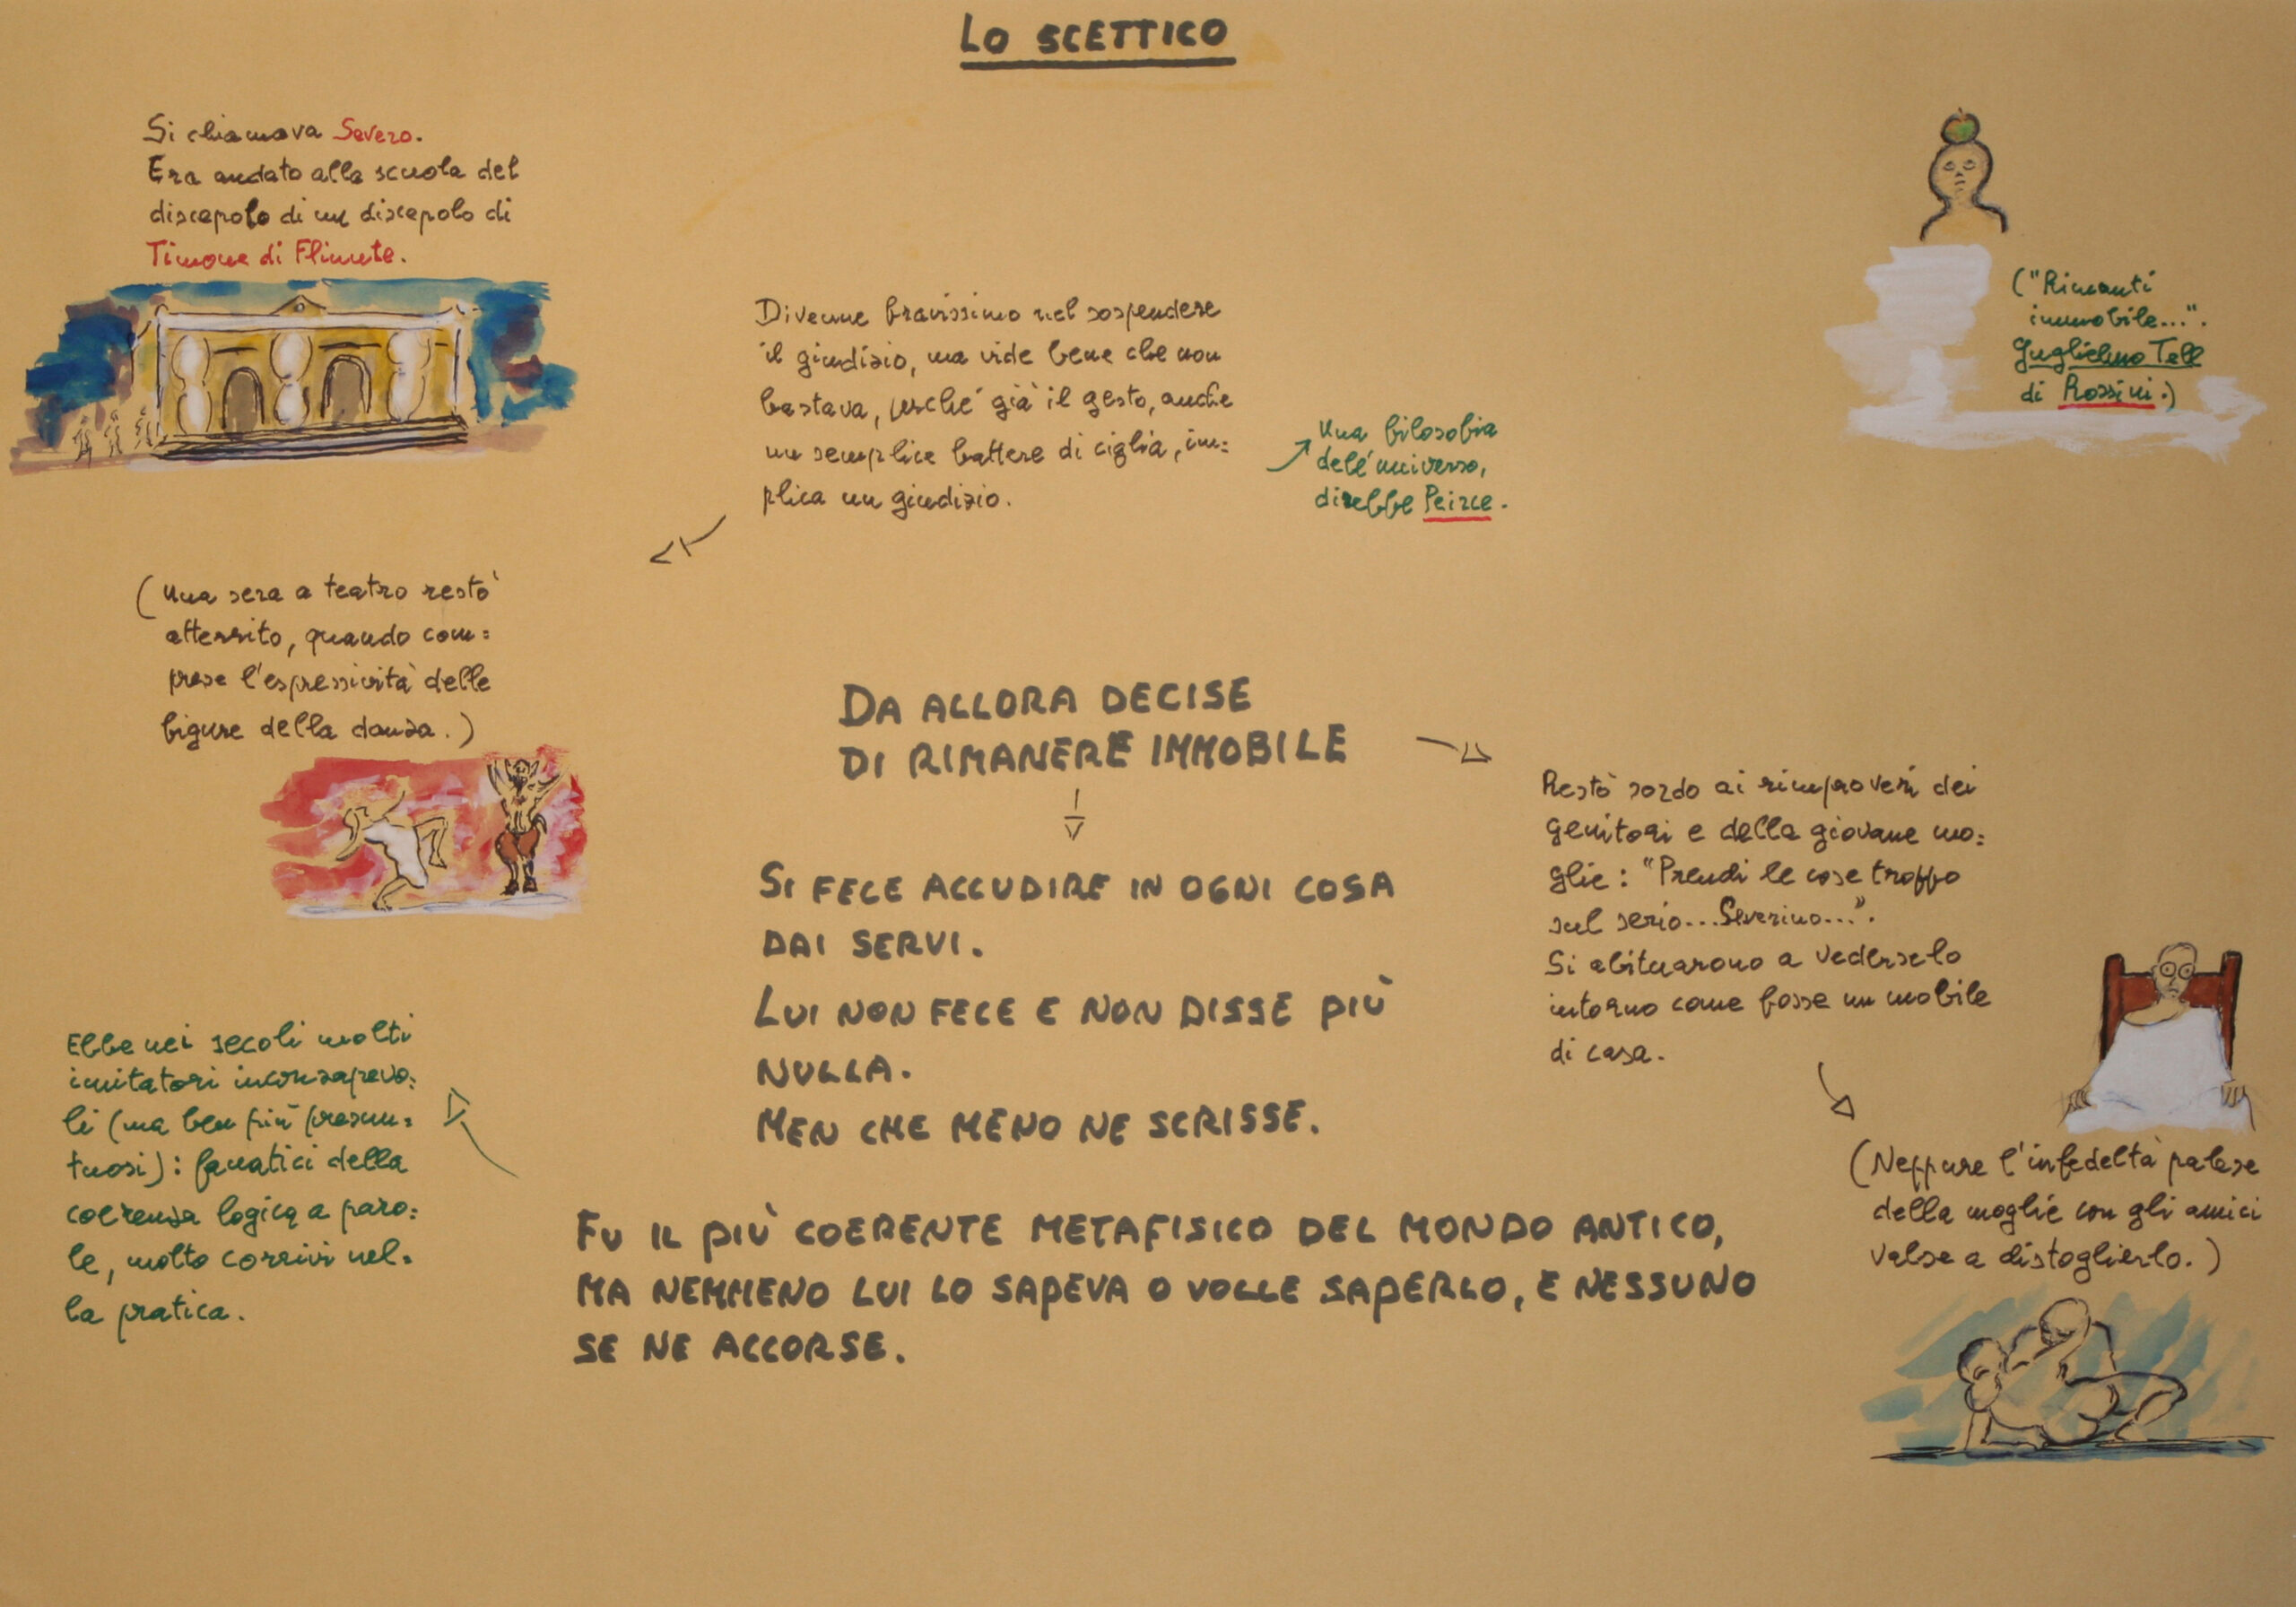 LO SCETTICO
Si chiamava Severo.
Era andato alla scuola del
discepolo di un discepolo di
Timone di Fliunte.
Divenne bravissimo nel sospendere
il giudizio, ma vide bene che non
bastava, perché già il gesto, anche
un semplice battere di ciglia, im=
plica un giudizio.
Una filosofia
dell'universo,
direbbe Peirce.
("Rimanti
immobile...".
Guglielmo Tell
di Rossini.)
(Una sera a teatro restò
atterrito, quando com=
prese l'espressività delle
figure della danza.)
DA ALLORA DECISE
DI RIMANERE IMMOBILE
SI FECE ACCUDIRE IN OGNI COSA
DAI SERVI.
LUI NON FECE E NON DISSE PIÙ
NULLA.
MEN CHE MENO NE SCRISSE.
Restò sordo ai rimproveri dei
genitori e della giovane mo=
glie: "Prendi le cose troppo
sul serio...Severino...".
Si abituarono a vederselo
intorno come fosse un mobile
di casa.
(Neppure l'infedeltà palese
della moglie con gli amici
valse a distoglierlo.)
Ebbe nei secoli molti
imitatori inconsapevo=
li (ma ben più presun=
tuosi): fanatici della
coerenza logica a paro=
le, molto corrivi nel=
la pratica.
FU IL PIÙ COERENTE METAFISICO DEL MONDO ANTICO,
MA NEMMENO LUI LO SAPEVA O VOLLE SAPERLO, E NESSUNO
SE NE ACCORSE.